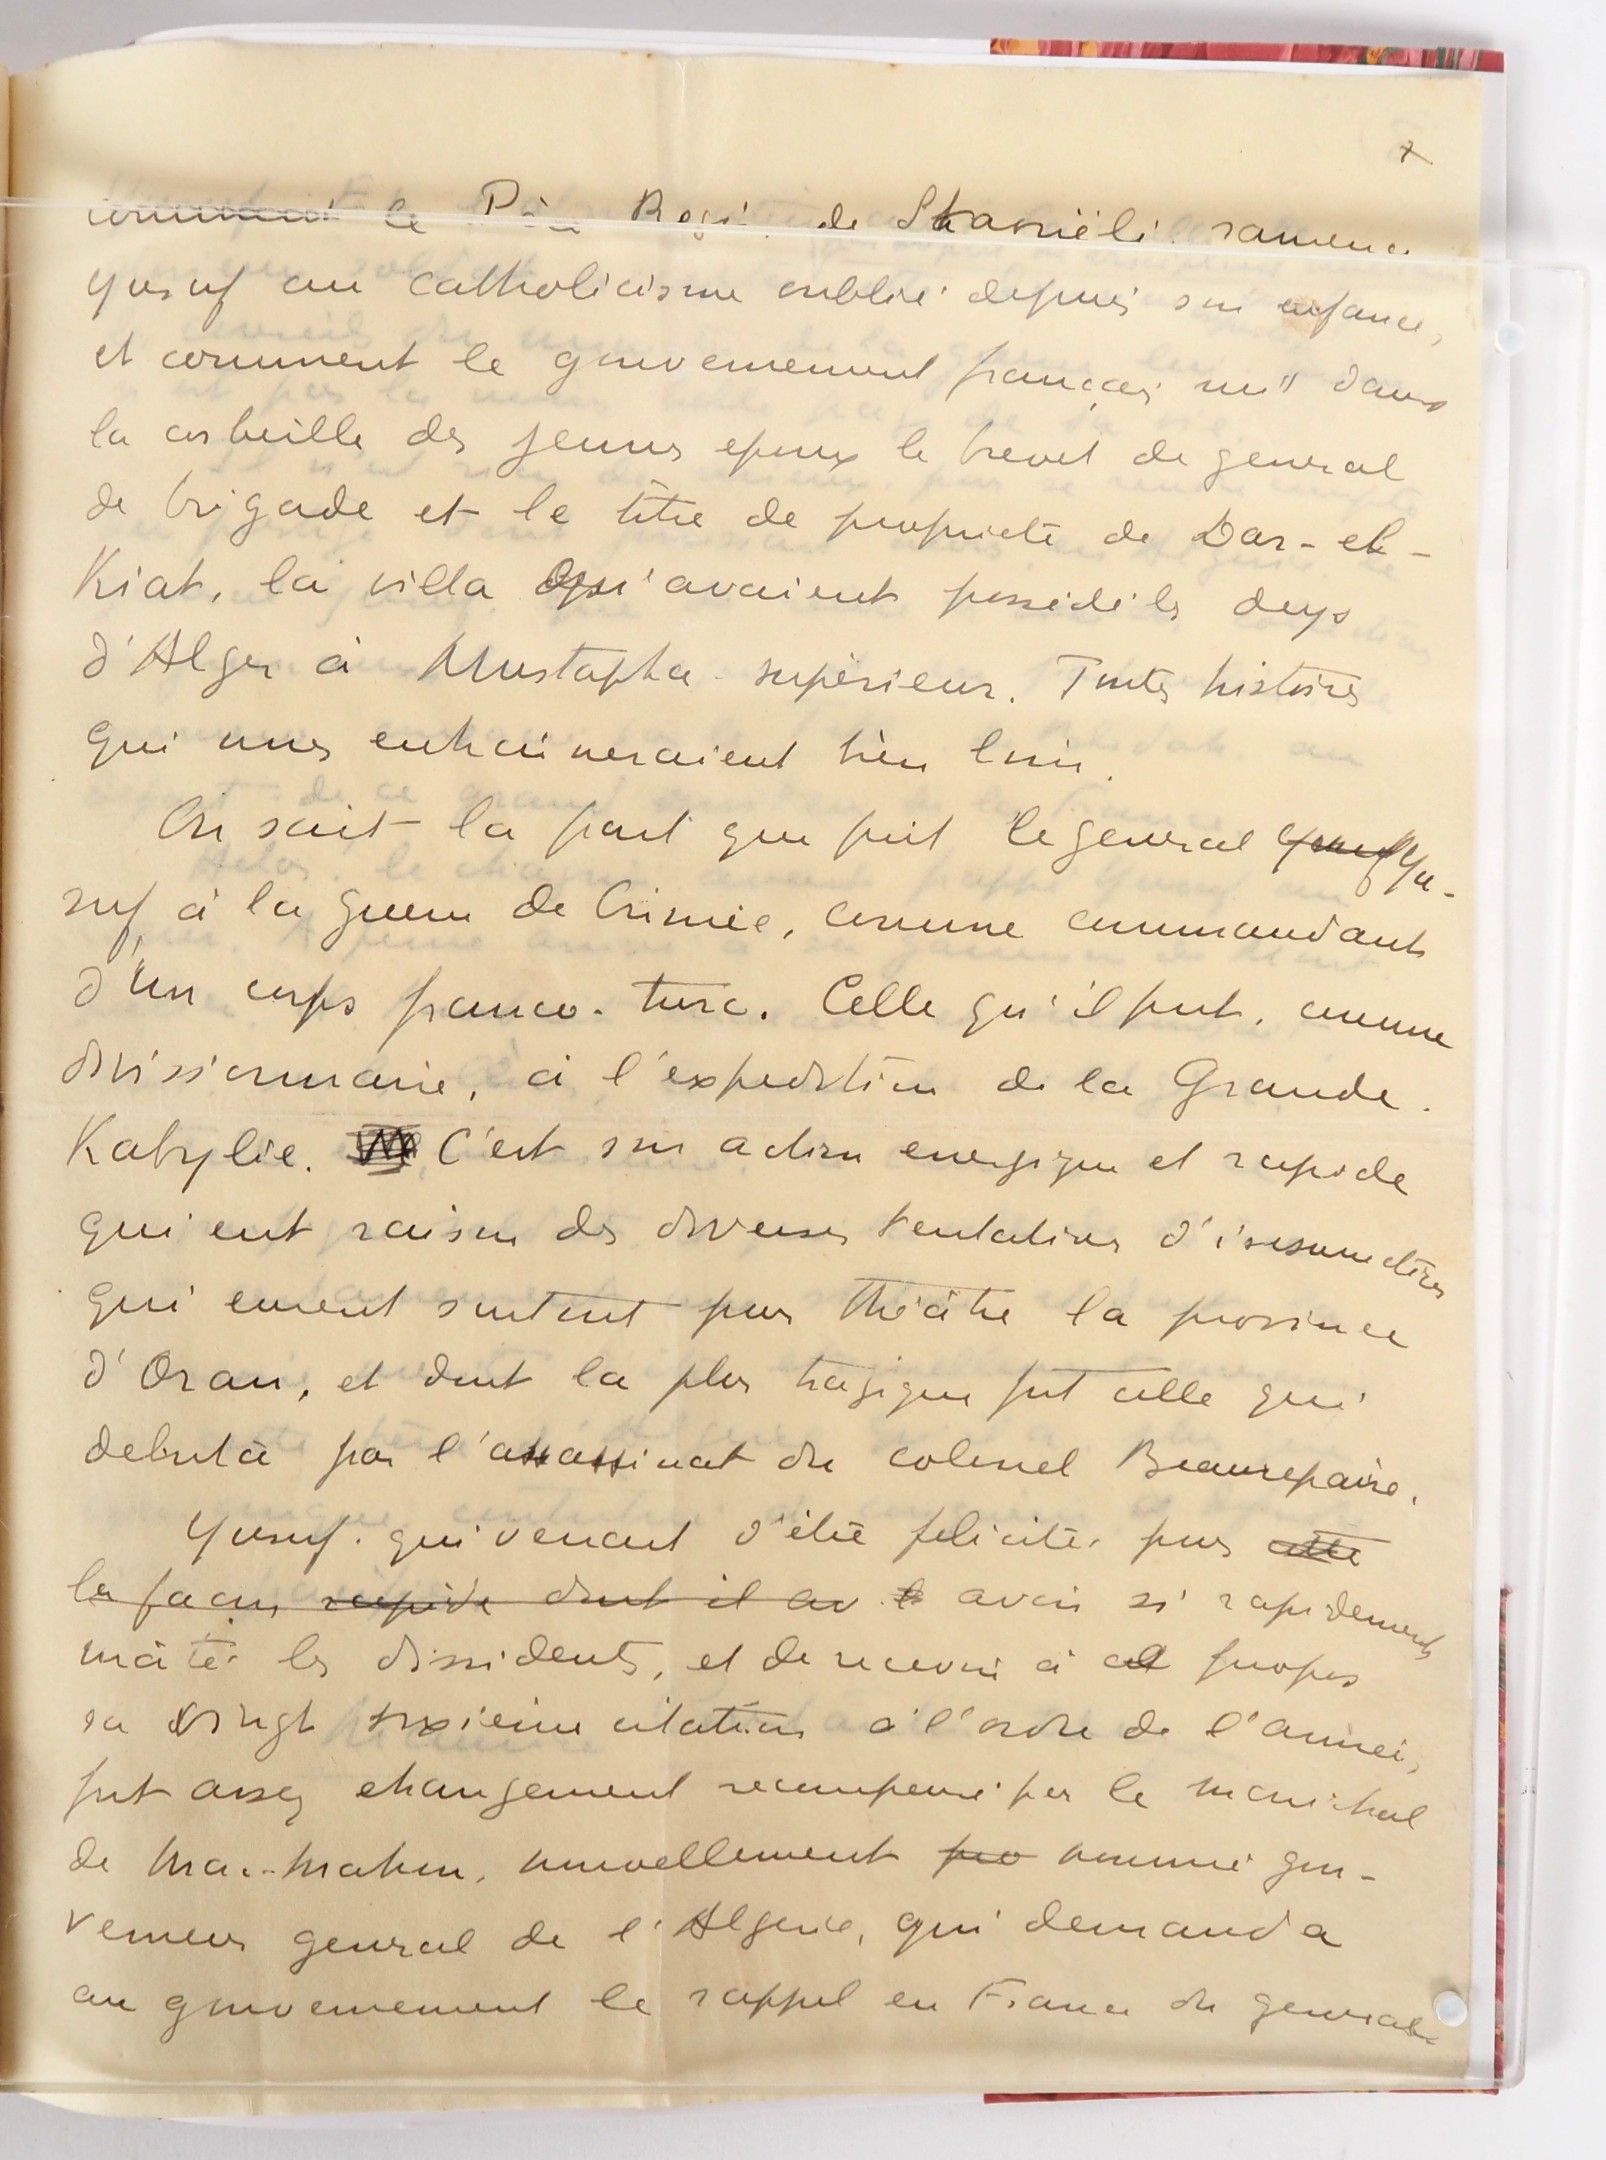 7
comment le Père Régis de Staouëli ramena
Yusuf au catholicisme oublié depuis son enfance,
et comment le gouvernement français mit dans
la corbeille des jeunes epoux le brevet de general
de brigade et le titre de propriete de Dar-el-
Kiat, la villa qu'avaient possédé les deys
d'Alger à Mustapha supérieur. Toutes histoires
qui nous entraineraient bien loin.
On sait la part que prit le general Yusuf Yu-
suf à la guerre de Crimée, comme commandant
d'un corps franco-turc. Celle qu'il prit, comme
divisionnaire, à l'expedition de la Grande
Kabylie. C'est son action energique et rapide
qui eut raison des diverses tentatives d'insurrections
qui eurent surtout pour théâtre la province
d'Oran, et dont la plus tragique fut celle qui
debuta par l'assassinat du colonel Beaurepaire.
Yusuf qui venait d'être félicité pour cette
la façon rapide dont il av avoir si rapidement
mâté les dissidents, et de recevoir à ce propos
sa vingt sixième citation à l'ordre de l'armée,
fut assez etrangement recompensé par le maréchal
de Mac-Mahon, nouvellement pro nommé gou-
verneur general de l'Algerie, qui demanda
au gouvernement le rappel en France du general